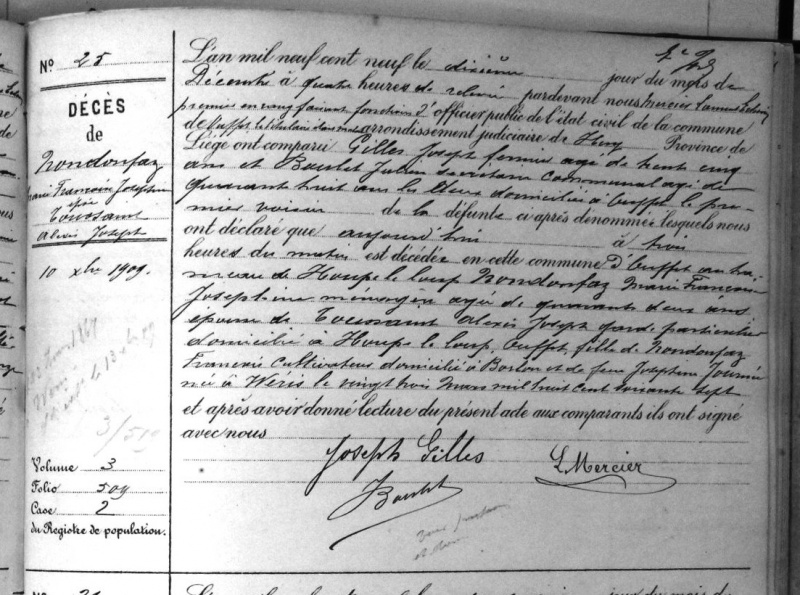 N° 25
DÉCÈS
de
Nondonfaz
Marie Françoise Joséphine
épse
Toussaint
Alexis Joseph
10 xbre 1909.
Volume 3
Folio 509
Case 2
du Registre de population.
L'an mil neuf cent neuf le dixième jour du mois de
Décembre à quatre heures de relevée pardevant nous Mercier
premier en rang faisant fonctions d'officier public de l'état civil de la commune
d'Ouffet arrondissement judiciaire de Huy Province de
Liége ont comparu Gilles Joseph fermier agé de trente cinq
ans et Boulet Julien secrétaire communal agé de
quarante huit ans les deux domiciliés à Ouffet le pre-
mier voisin de la défunte ci après dénommée lesquels nous
ont déclaré que aujourd'hui à trois
heures du matin est décédée en cette commune d'Ouffet au ha-
meau de Houpe le loup Nondonfaz Marie Françoise
Joséphine ménagère agée de quarante deux ans
épouse de Toussaint Alexis Joseph garde particulier
domicilié à Houpe le loup, Ouffet, fille de Nondonfaz
François cultivateur domicilié à Borlon et de feue Joséphine
née à Wéris le vingt trois mars mil huit cent soixante sept
et après avoir donné lecture du présent acte aux comparants ils ont signé
avec nous
Joseph Gilles L. Mercier
J Boulet
3/509